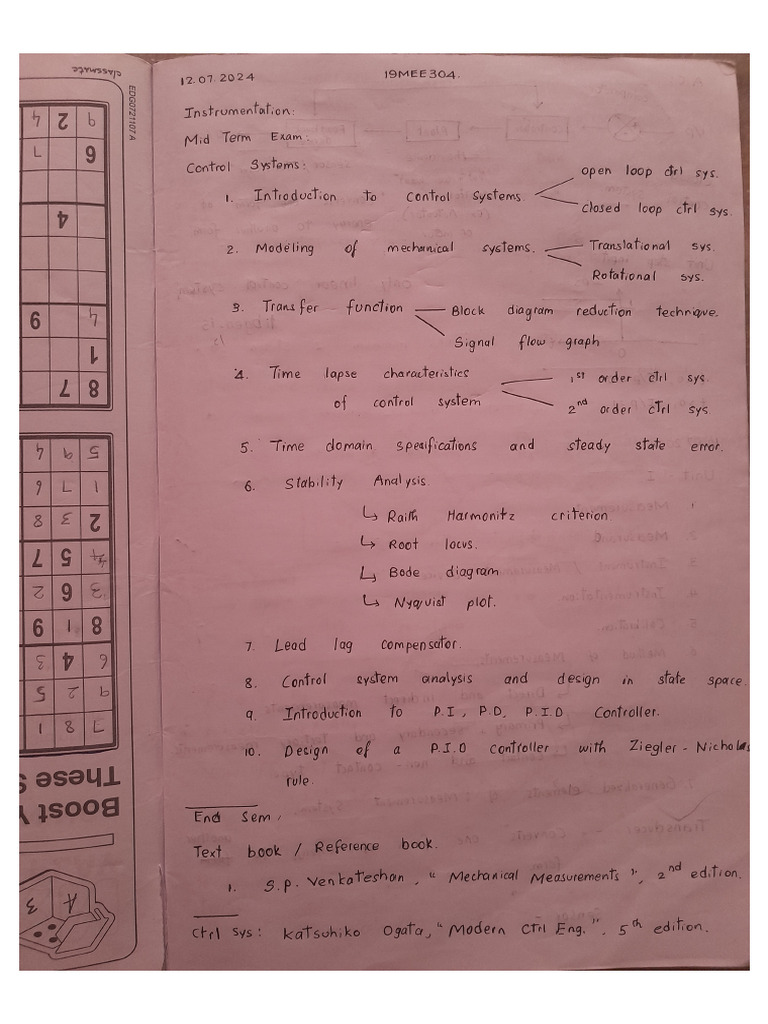 12.07.2024
19MEE304.
Instrumentation:
Mid Term Exam:
Control Systems:
1. Introduction to control systems.
open loop ctrl sys.
closed loop ctrl sys.
2. Modeling of mechanical systems.
Translational sys.
Rotational sys.
3. Transfer function
Block diagram reduction technique.
Signal flow graph
4. Time lapse characteristics
of control system
1st order ctrl sys.
2nd order ctrl sys.
5. Time domain spesifications and steady state error.
6. Stability Analysis.
↳ Raith Harmonitz criterion
↳ Root locus.
↳ Bode diagram
↳ Nyquist plot.
7. Lead lag compensator.
8. Control system analysis and design in state space.
9. Introduction to P.I, P.D, P.I.D Controller.
10. Design of a P.I.D controller with Ziegler - Nicholas
rule.
End Sem,
Text book / Reference book.
1. S.P. Venkateshan, "Mechanical Measurements", 2nd edition.
Ctrl sys: Katsuhiko Ogata, "Modern Ctrl Eng.", 5th edition.
classmate
EDG0721107 A
Boost Y
These S
A
3
9 2 4
6 7
4
9 4
1
8 7
5 9 4
1 7 6
2 3 8
4 5 7
3 6 2
8 1 9
6 4 3
9 2 5
7 8 1